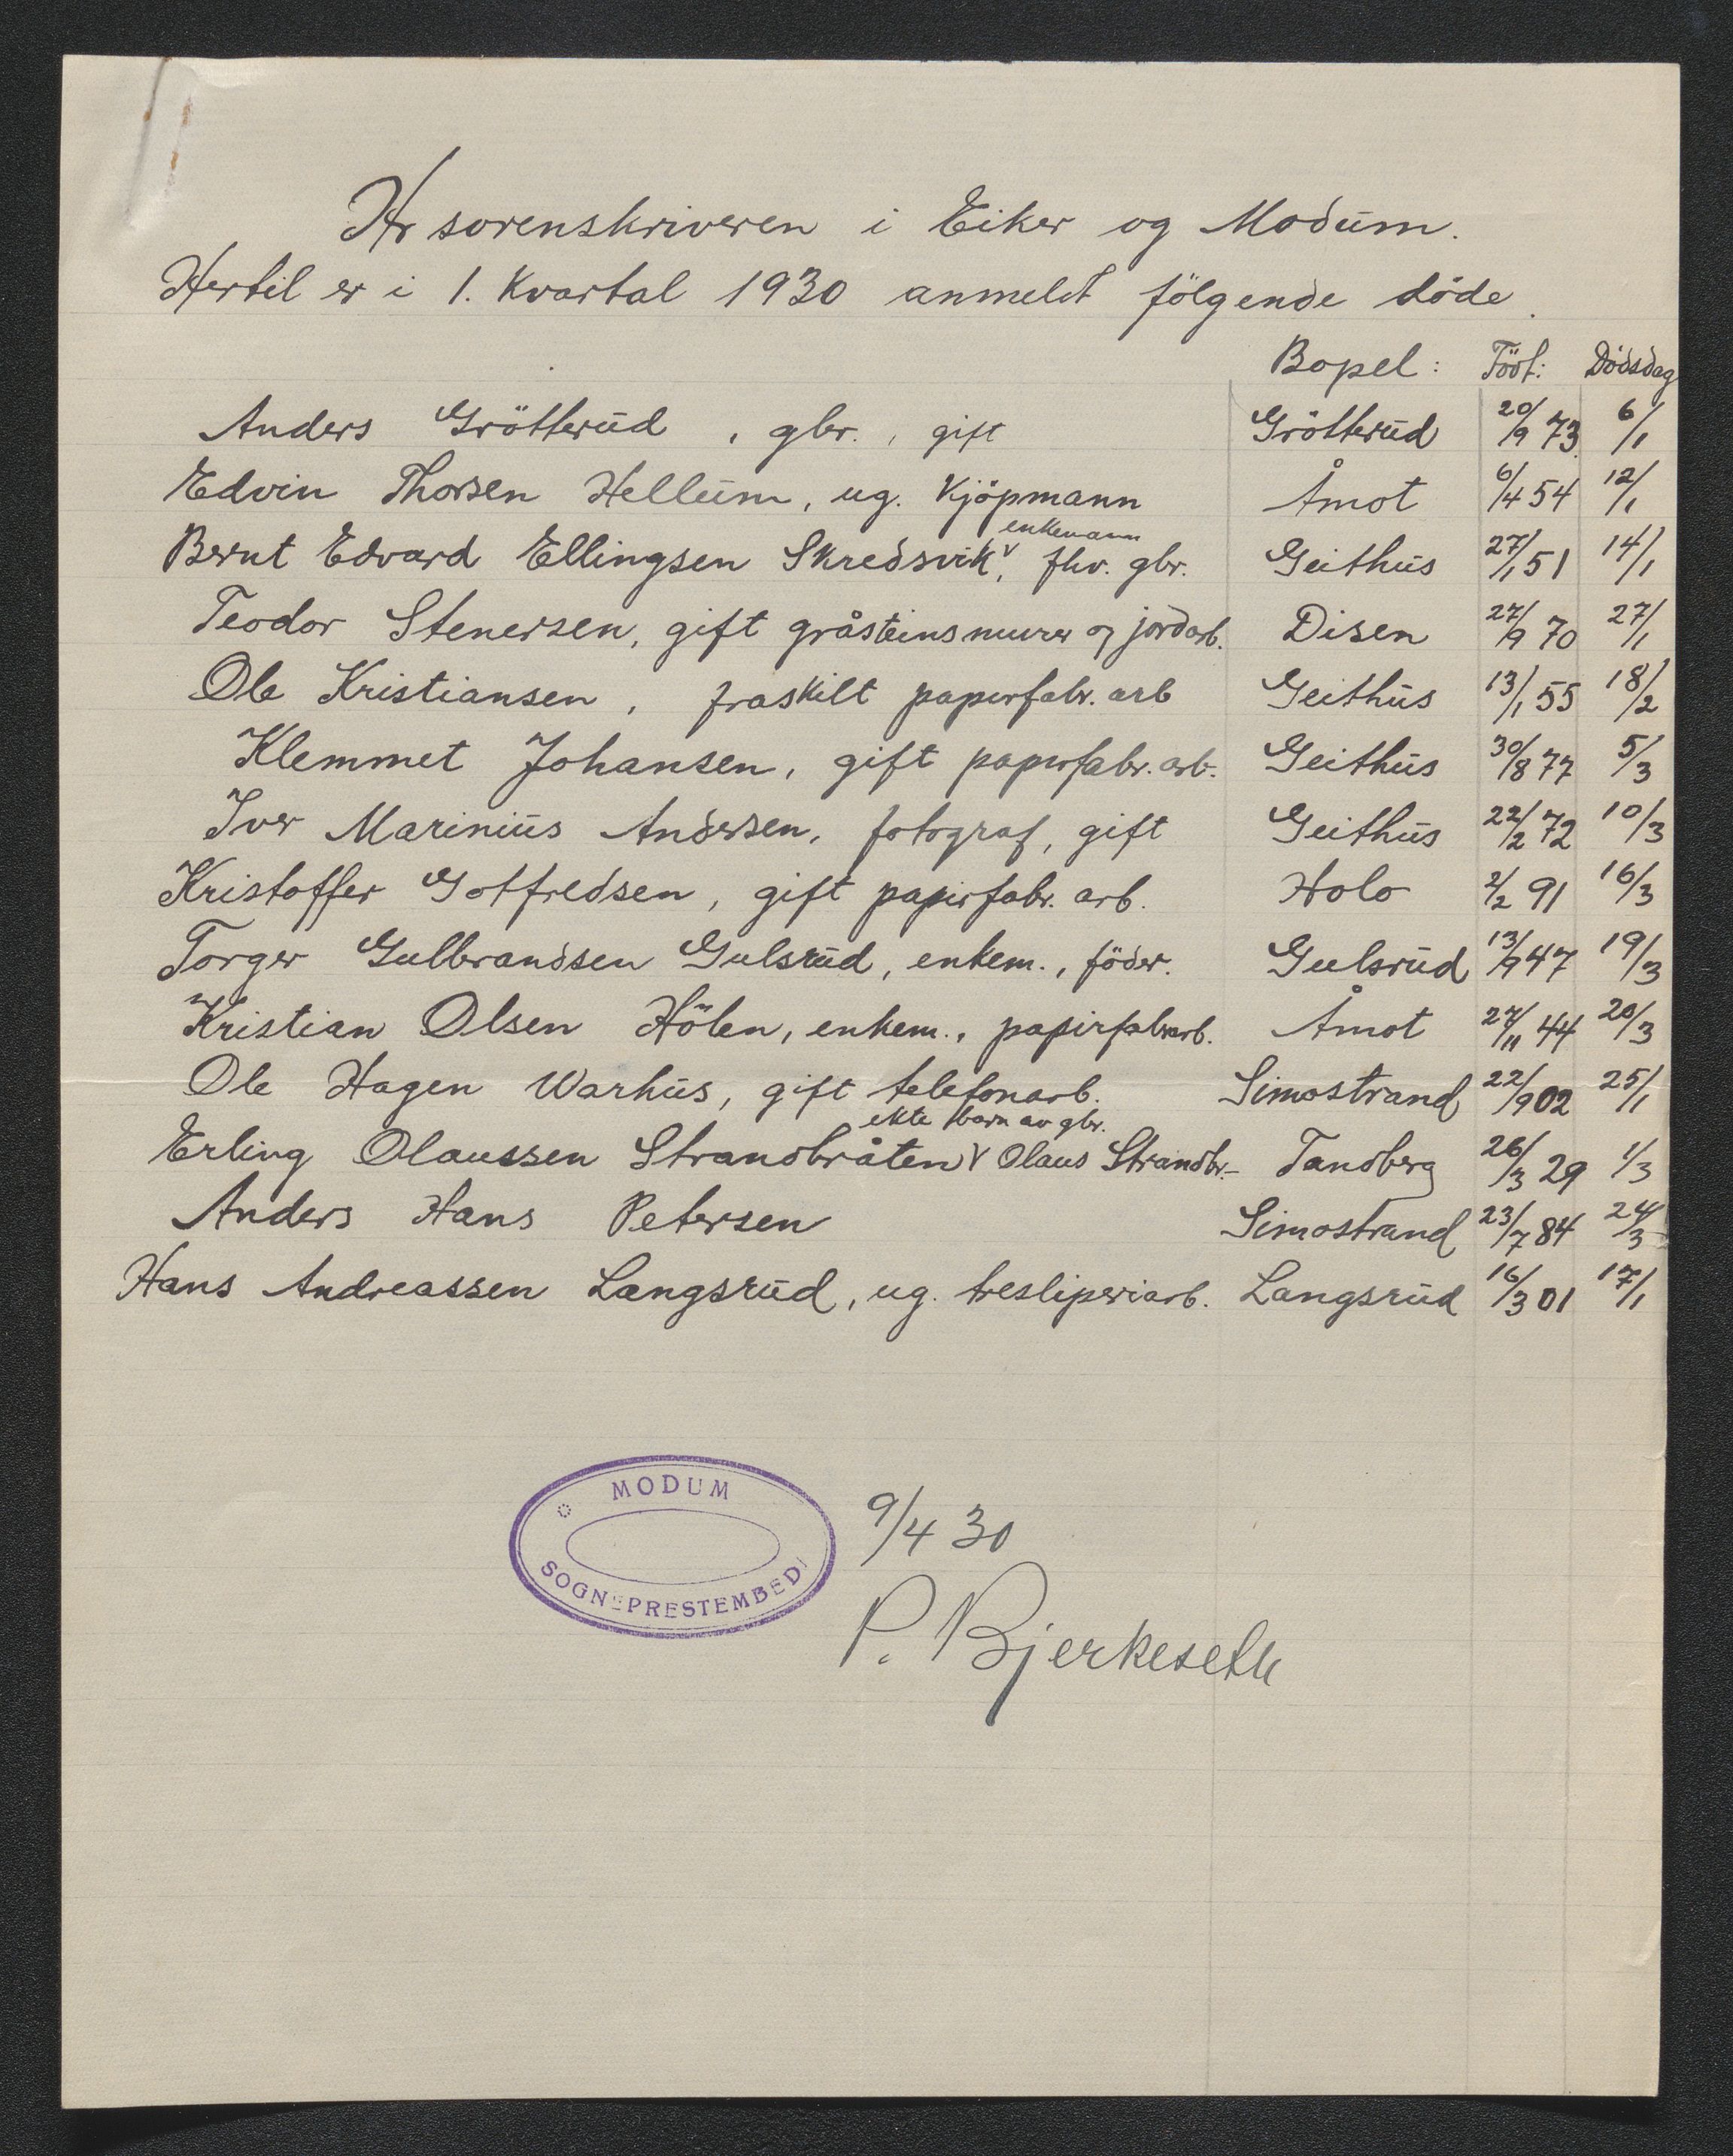 Hr sorenskriveren i Eiker og Modum.
Hertil er i 1. Kvartal 1930 anmeldt følgende døde.
Bopel: Födt: Dödsdag
Anders Grötterud, gbr., gift Grötterud 20/9 73 6/1
Edvin Thorsen Hellum, ug. Kjöpmann Åmot 6/4 54 12/1
enkemann
Bernt Edvard Ellingsen Skredsvik, fhv. gbr. Geithus 27/1 51 14/1
Teodor Stenersen, gift gråsteinsmurer og jordarb. Disen 27/9 70 27/1
Ole Kristiansen, fraskilt papirfabr. arb Geithus 13/1 55 18/2
Klemmet Johansen, gift papirfabr. arb. Geithus 30/8 77 5/3
Iver Marinius Andersen, fotograf, gift Geithus 22/2 72 10/3
Kristoffer Gotfredsen, gift papirfabr. arb. Holo 2/2 91 16/3
Torger Gulbrandsen Gulsrud, enkem., föder. Gulsrud 13/9 47 19/3
Kristian Olsen Hölen, enkem., papirfabrarb. Åmot 27/11 44 20/3
Ole Hagen Warhus, gift telefonarb. Simostrand 22/9 02 25/1
ekte barn av gbr.
Erling Olaussen Strandbråten V Olaus Strandbr.- Tandberg 26/3 29 1/3
Anders Hans Petersen Simostrand 23/7 84 24/3
Hans Andreassen Langsrud, ug. tresliperiarb. Langsrud 16/3 01 17/1
MODUM
SOGNEPRESTEMBED
9/4 30
P. Bjerkeseth